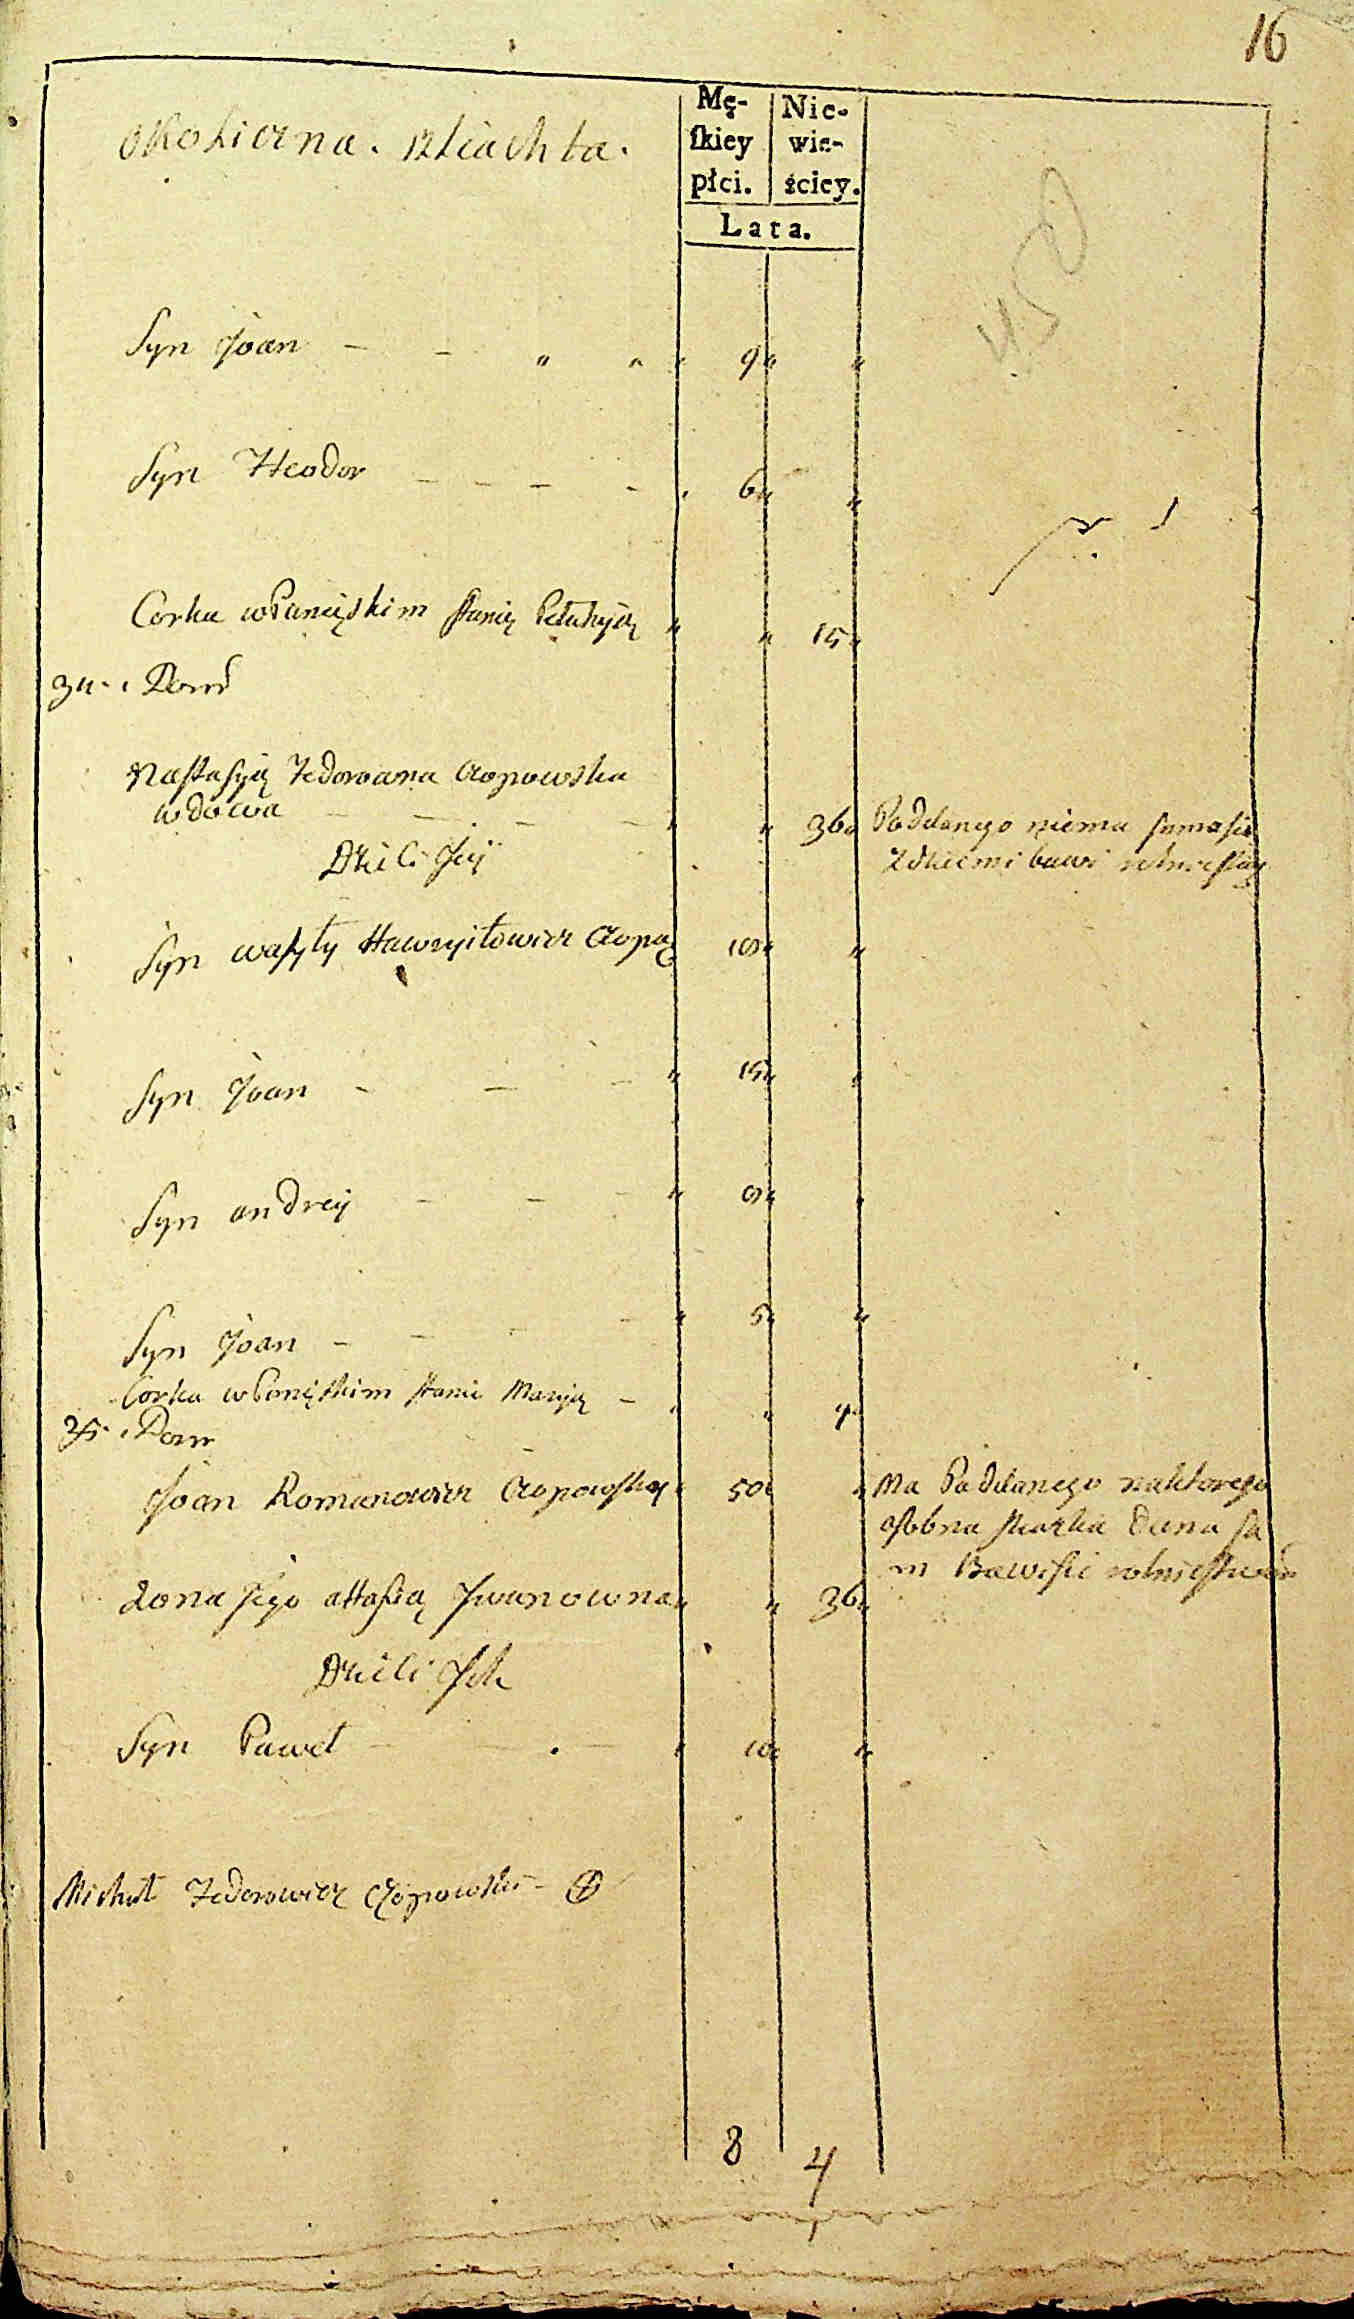 16
okoliczna. szliachta.
Mę-
skiey
płci.
Nie-
wie-
ściey.
Lata.
Syn Joan — — " " " 9 " "
Syn Heodor — — — — 6 " "
Corka wPanięskim stanię Pełahyią " " 15 "
34. Dom
Nastasyią Fedorowna Czopowska
wdowa — — — — " " 36 Poddanego niema sama się
Dzieci Jey z dziećmi bawi rolnictwem
Syn wasyly Hawryiłowicz Czopo 18 " "
Syn Joan — — — " 15 " "
Syn andrey — — — " 8 " "
Syn Joan — — — — " 5 " "
Corka wPanięskim stanie Maryią — " "
35. Dom
Joan Romanowicz Czopowsky " 50 " Ma Poddanego naktorego
osobna skazka dana sa
m Bawisie rolnictwem
żona Jego attasią Jwanowna " " 36 "
Dzieci Jch
Syn Paweł — — — " 10 " "
Michał Fedorowicz Czopowski —
8 4